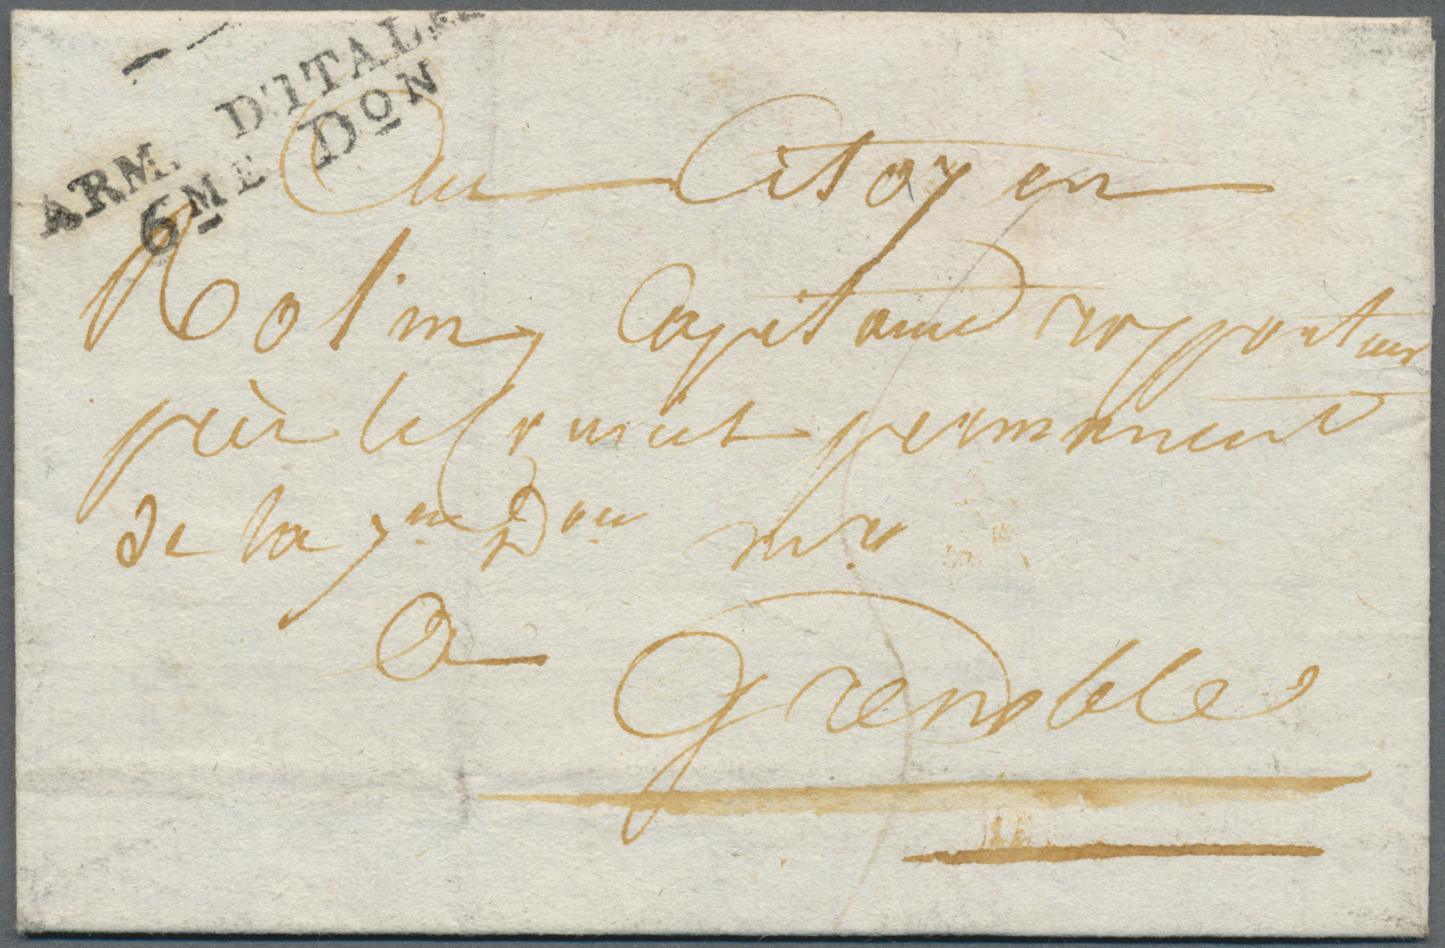 ARM. D'ITALIE
6ME DON
Au Citoyen
Rolin, Capitaine rapporteur
près le Conseil permanent
de la 7me Don mre
a
Grenoble